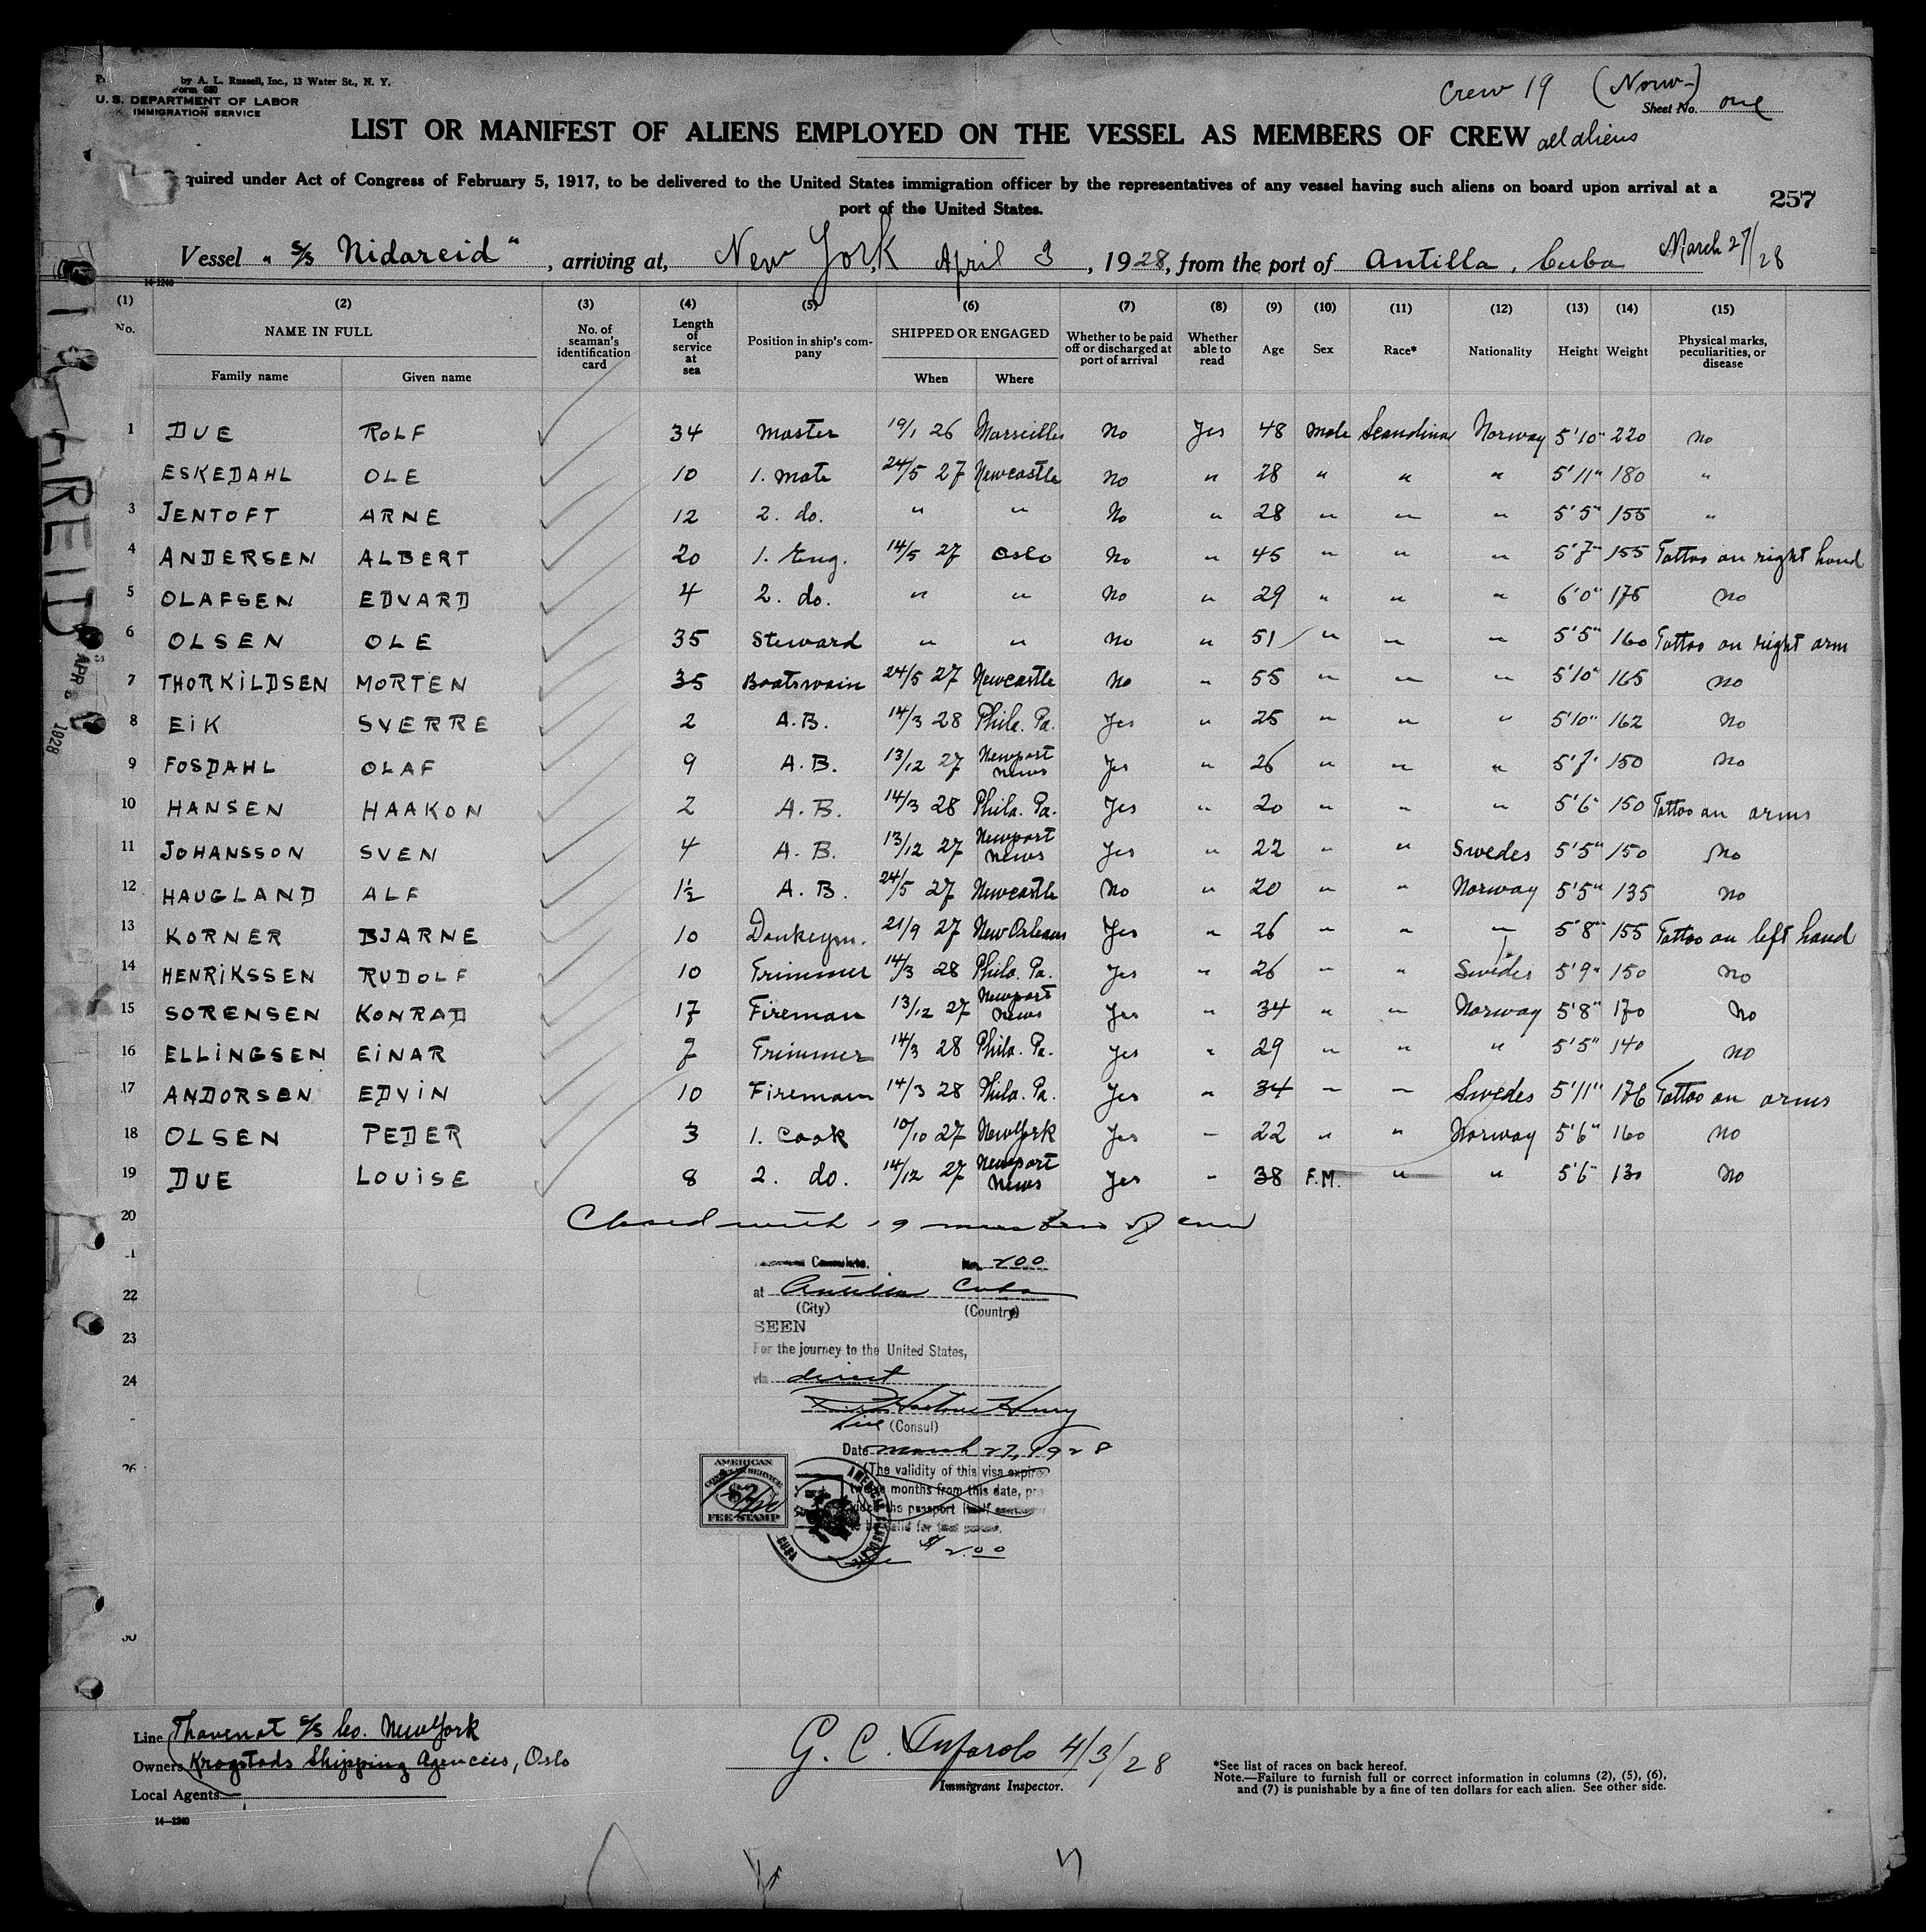 by A. L. Russell, Inc., 13 Water St., N. Y.
Form 680
U. S. DEPARTMENT OF LABOR
IMMIGRATION SERVICE
Crew 19 (Norw-)
Sheet No. one
LIST OR MANIFEST OF ALIENS EMPLOYED ON THE VESSEL AS MEMBERS OF CREW all aliens
quired under Act of Congress of February 5, 1917, to be delivered to the United States immigration officer by the representatives of any vessel having such aliens on board upon arrival at a
port of the United States.
257
Vessel "S/S Nidareid", arriving at, New York April 3, 1928, from the port of Antilla, Cuba March 27/28
14-1240
(1) (2) (3) (4) (5) (6) (7) (8) (9) (10) (11) (12) (13) (14) (15)
No. NAME IN FULL No. of seaman's identification card Length of service at sea Position in ship's company SHIPPED OR ENGAGED Whether to be paid off or discharged at port of arrival Whether able to read Age Sex Race* Nationality Height Weight Physical marks, peculiarities, or disease
Family name Given name When Where
1 DUE ROLF 34 Master 19/1 26 Marseilles No Yes 48 Male Scandinav Norway 5'10" 220 No
ESKEDAHL OLE 10 1. Mate 24/5 27 Newcastle No " 28 " " " 5'11" 180 "
3 JENTOFT ARNE 12 2. do. " " No " 28 " " " 5'5" 155 "
4 ANDERSEN ALBERT 20 1. Eng. 14/5 27 Oslo No " 45 " " " 5'7" 155 Tattoo on right hand
5 OLAFSEN EDVARD 4 2. do. " " No " 29 " " " 6'0" 175 No
6 OLSEN OLE 35 Steward " " No " 51 " " " 5'5" 160 Tattoo on right arm
7 THORKILDSEN MORTEN 35 Boatswain 24/5 27 Newcastle No " 55 " " " 5'10" 165 No
8 EIK SVERRE 2 A.B. 14/3 28 Phila. Pa. Yes " 25 " " " 5'10" 162 No
9 FOSDAHL OLAF 9 A.B. 13/12 27 Newport News Yes " 26 " " " 5'7" 150 No
10 HANSEN HAAKON 2 A.B. 14/3 28 Phila. Pa. Yes " 20 " " " 5'6" 150 Tattoo on arms
11 JOHANSSON SVEN 4 A.B. 13/12 27 Newport News Yes " 22 " " Swedes 5'5" 150 No
12 HAUGLAND ALF 1½ A.B. 24/5 27 Newcastle No " 20 " " Norway 5'5" 135 No
13 KORNER BJARNE 10 Donkeym. 21/9 27 New Orleans Yes " 26 " " " 5'8" 155 Tattoo on left hand
14 HENRIKSSEN RUDOLF 10 Trimmer 14/3 28 Phila. Pa. Yes " 26 " " Swedes 5'9" 150 No
15 SORENSEN KONRAD 17 Fireman 13/12 27 Newport News Yes " 34 " " Norway 5'8" 170 No
16 ELLINGSEN EINAR 7 Trimmer 14/3 28 Phila. Pa. Yes " 29 " " " 5'5" 140 No
17 ANDORSEN EDVIN 10 Fireman 14/3 28 Phila. Pa. Yes " 34 " " Swedes 5'11" 176 Tattoo on arms
18 OLSEN PEDER 3 1. Cook 10/10 27 New York Yes " 22 " " Norway 5'6" 160 No
19 DUE LOUISE 8 2. do. 14/12 27 Newport News Yes " 38 F.M. " " 5'6" 130 No
20 Closed with 19 members of crew
Consulate. No. 200
22 at Antilla Cuba
(City) (Country)
SEEN
23
For the journey to the United States,
24 via direct
Vice (Consul)
Date March 27, 1928
26
(The validity of this visa expires
twelve months from this date, pro
vided the passport itself
to be valid for that period.
$2.00
AMERICAN
CONSULAR SERVICE
$2
FEE STAMP
AMERICAN CONSULATE
CUBA
NIDAREID
APR 3 1928
Line Thavenot S/S Co. New York
Owners Krogstads Shipping Agencies, Oslo
Local Agents
14—1240
G. C. 4/3/28
Immigrant Inspector.
*See list of races on back hereof.
Note.—Failure to furnish full or correct information in columns (2), (5), (6),
and (7) is punishable by a fine of ten dollars for each alien. See other side.